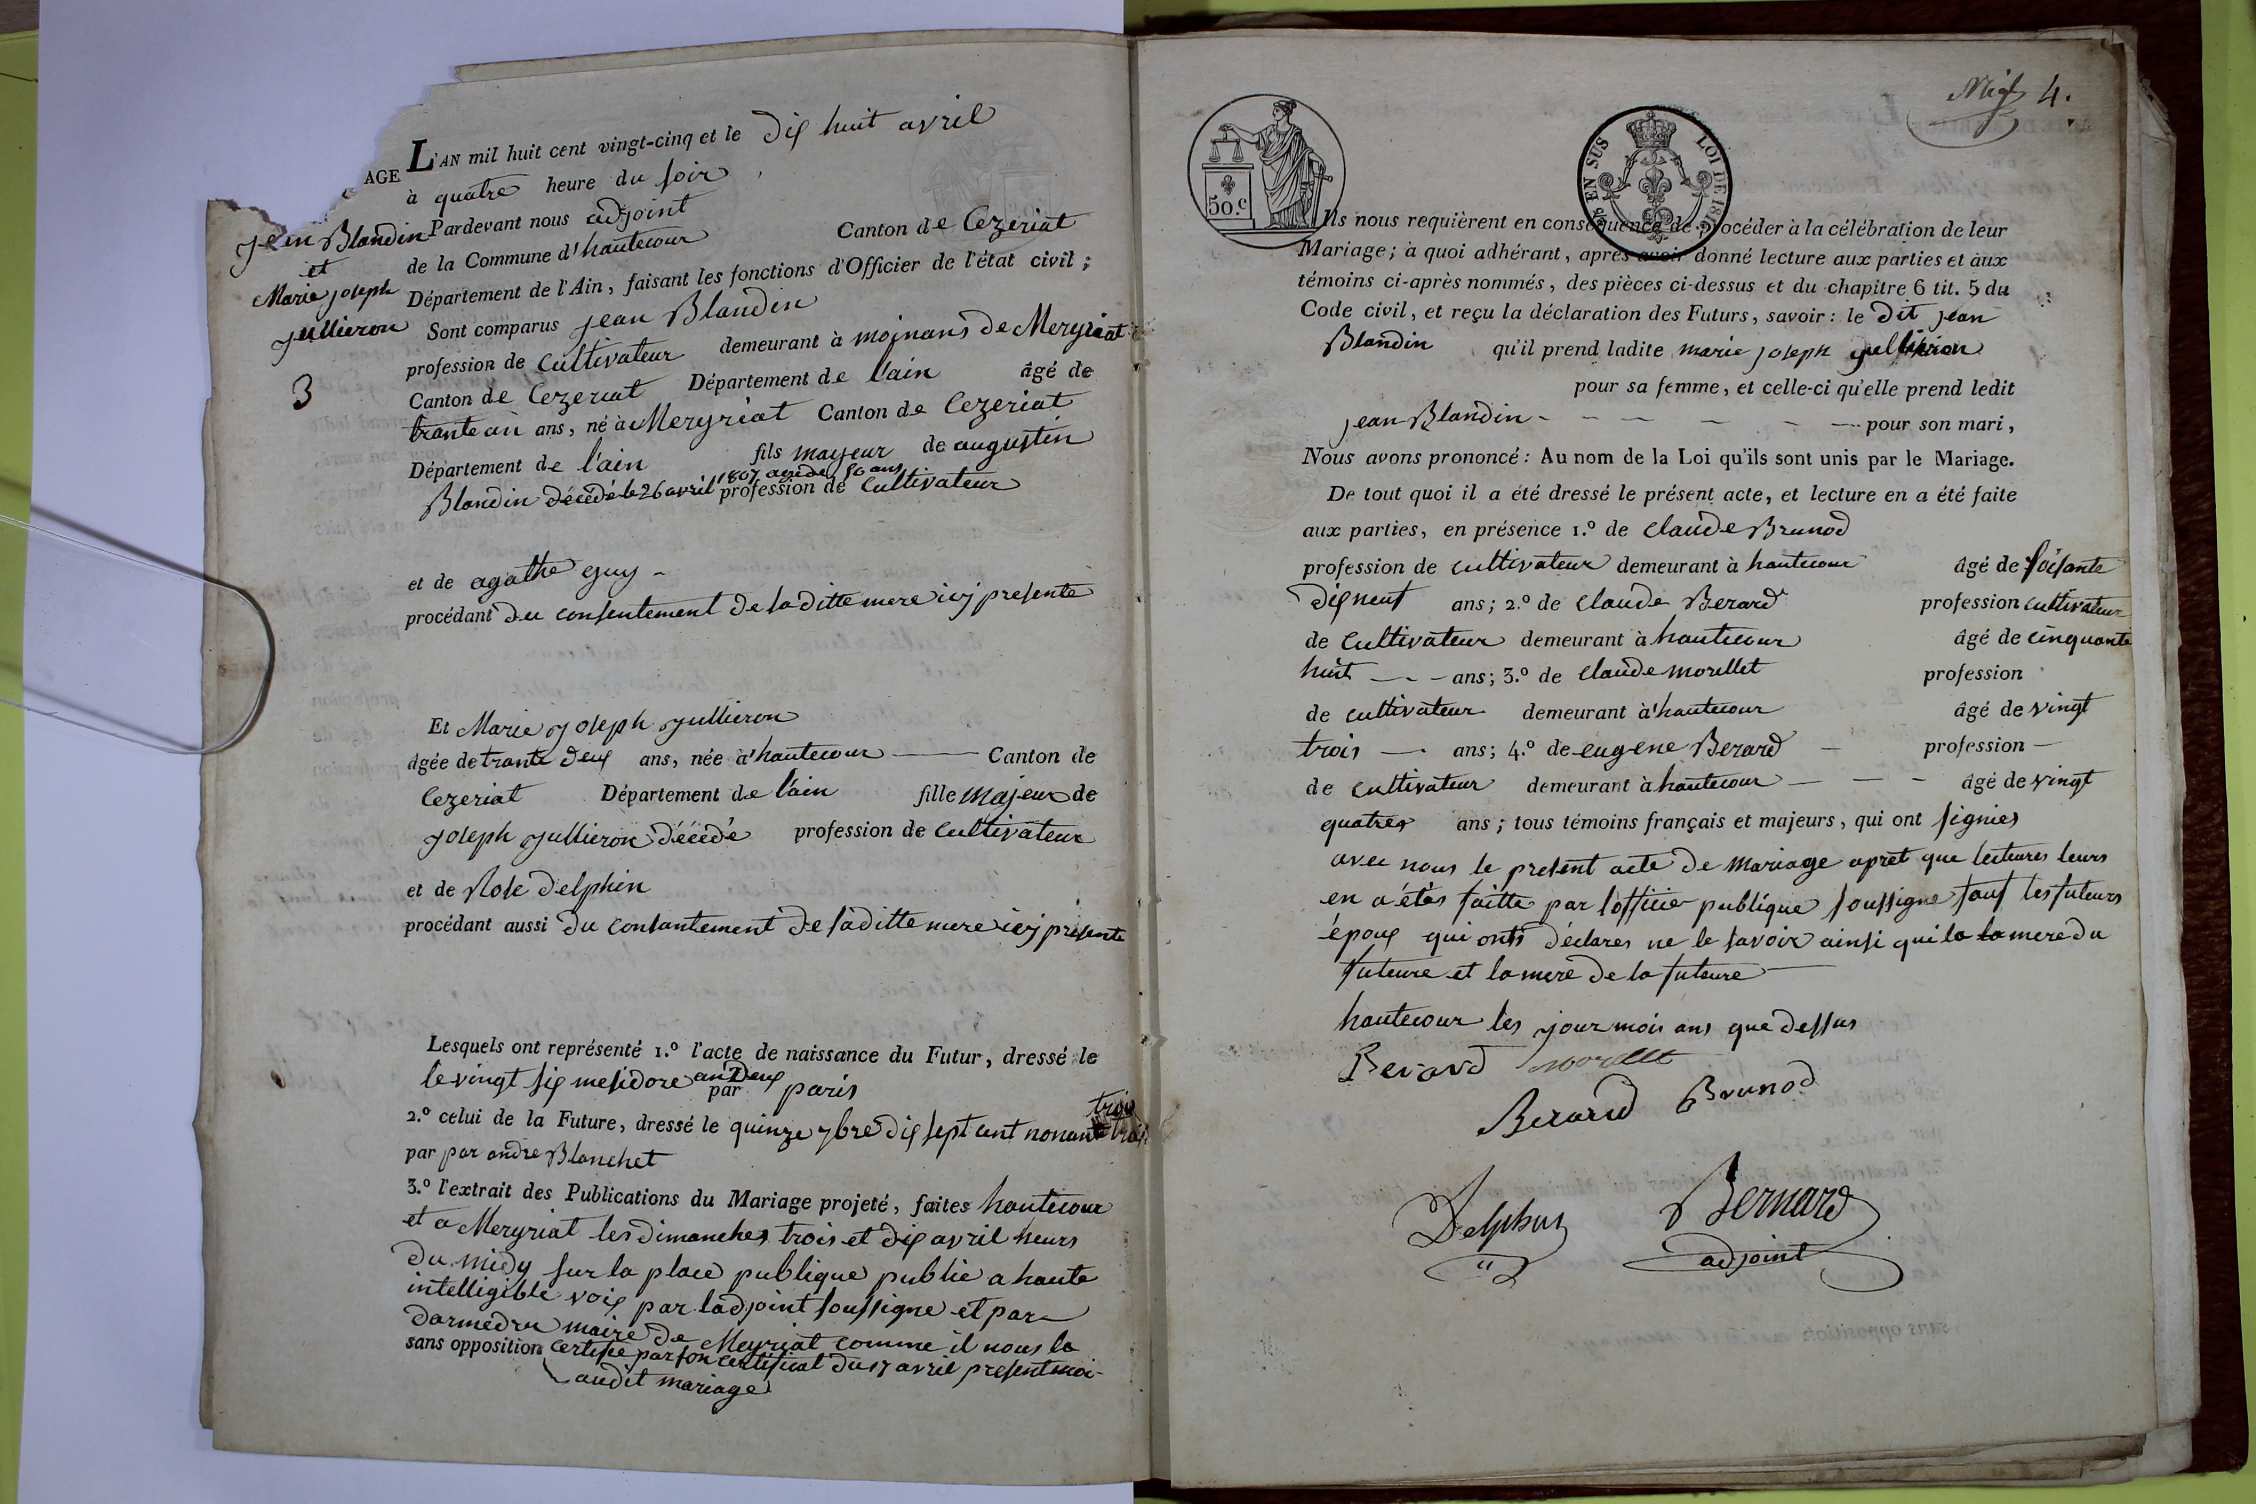 AGE
Jean Blandin
et
Marie joseph
jullieron
3
L'AN mil huit cent vingt-cinq et le dix huit avril
à quatre heure du soir
Pardevant nous adjoint
de la Commune d'hautecour Canton de Cezeriat
Département de l'Ain, faisant les fonctions d'Officier de l'état civil ;
Sont comparus jean Blandin
profession de cultivateur demeurant à moinans de Meryriat
Canton de Cezeriat Département de l'ain âgé de
trante un ans, né à Meryriat Canton de Cezeriat
Département de l'ain fils mayeur de augustin
Blandin décédé le 26 avril 1807 agé de 50 ans profession de Cultivateur
et de agathe guy -
procédant du consentement de sa ditte mere icÿ presente
Et Marie joseph jullieron
âgée de trante deux ans, née à hautecour Canton de
Cezeriat Département de l'ain fille majeur de
joseph jullieron décédé profession de Cultivateur
et de Rose delphin
procédant aussi du consantement de sa ditte mere icÿ présente
Lesquels ont représenté 1.º l'acte de naissance du Futur, dressé le
le vingt six mesidore an Deux par paris
2.º celui de la Future, dressé le quinze 7bre dix sept cent nonante trois
par par andre Blanchet
3.º l'extrait des Publications du Mariage projeté, faites hautecour
et a Meryriat les dimanches trois et dix avril heurs
du midy sur la place publique publie a haute
intelligible voix par ladjoint soussigne et par
darmedru maire de Meyriat comme il nous la
sans opposition certifie par son certificat du 17 avril present moi-
audit mariage
4.
50.c
EN SUS LOI DE 1816
Ils nous requièrent en conséquence de procéder à la célébration de leur
Mariage ; à quoi adhérant, après avoir donné lecture aux parties et aux
témoins ci-après nommés, des pièces ci-dessus et du chapitre 6 tit. 5 du
Code civil, et reçu la déclaration des Futurs, savoir : le dit jean
Blandin qu'il prend ladite marie joseph jullieron
pour sa femme, et celle-ci qu'elle prend ledit
jean Blandin - - - - - - pour son mari,
Nous avons prononcé : Au nom de la Loi qu'ils sont unis par le Mariage.
De tout quoi il a été dressé le présent acte, et lecture en a été faite
aux parties, en présence 1.º de claude Brunod
profession de cultivateur demeurant à hautecour âgé de soisante
dix neuf ans ; 2.º de Claude Berard profession cultivateur
de Cultivateur demeurant à hautecour âgé de cinquante
huit - - - ans ; 3.º de Claude morellet profession
de cultivateur demeurant à hautecour âgé de vingt
trois - ans ; 4.º de eugene Berard - profession -
de cultivateur demeurant à hautecour - - - âgé de vingt
quatres ans ; tous témoins français et majeurs, qui ont signies
avec nous le present acte de mariage apret que lectures leurs
en a étés faitte par lofficier publique soussigne sauf les futeurs
époux qui onts déclares ne le savoir ainsi qui la la mere du
futeure et la mere de la futeure
hautecour les jour mois ans que dessus
Berard morellet
Berard Brunod
Delphin Bernard
adjoint